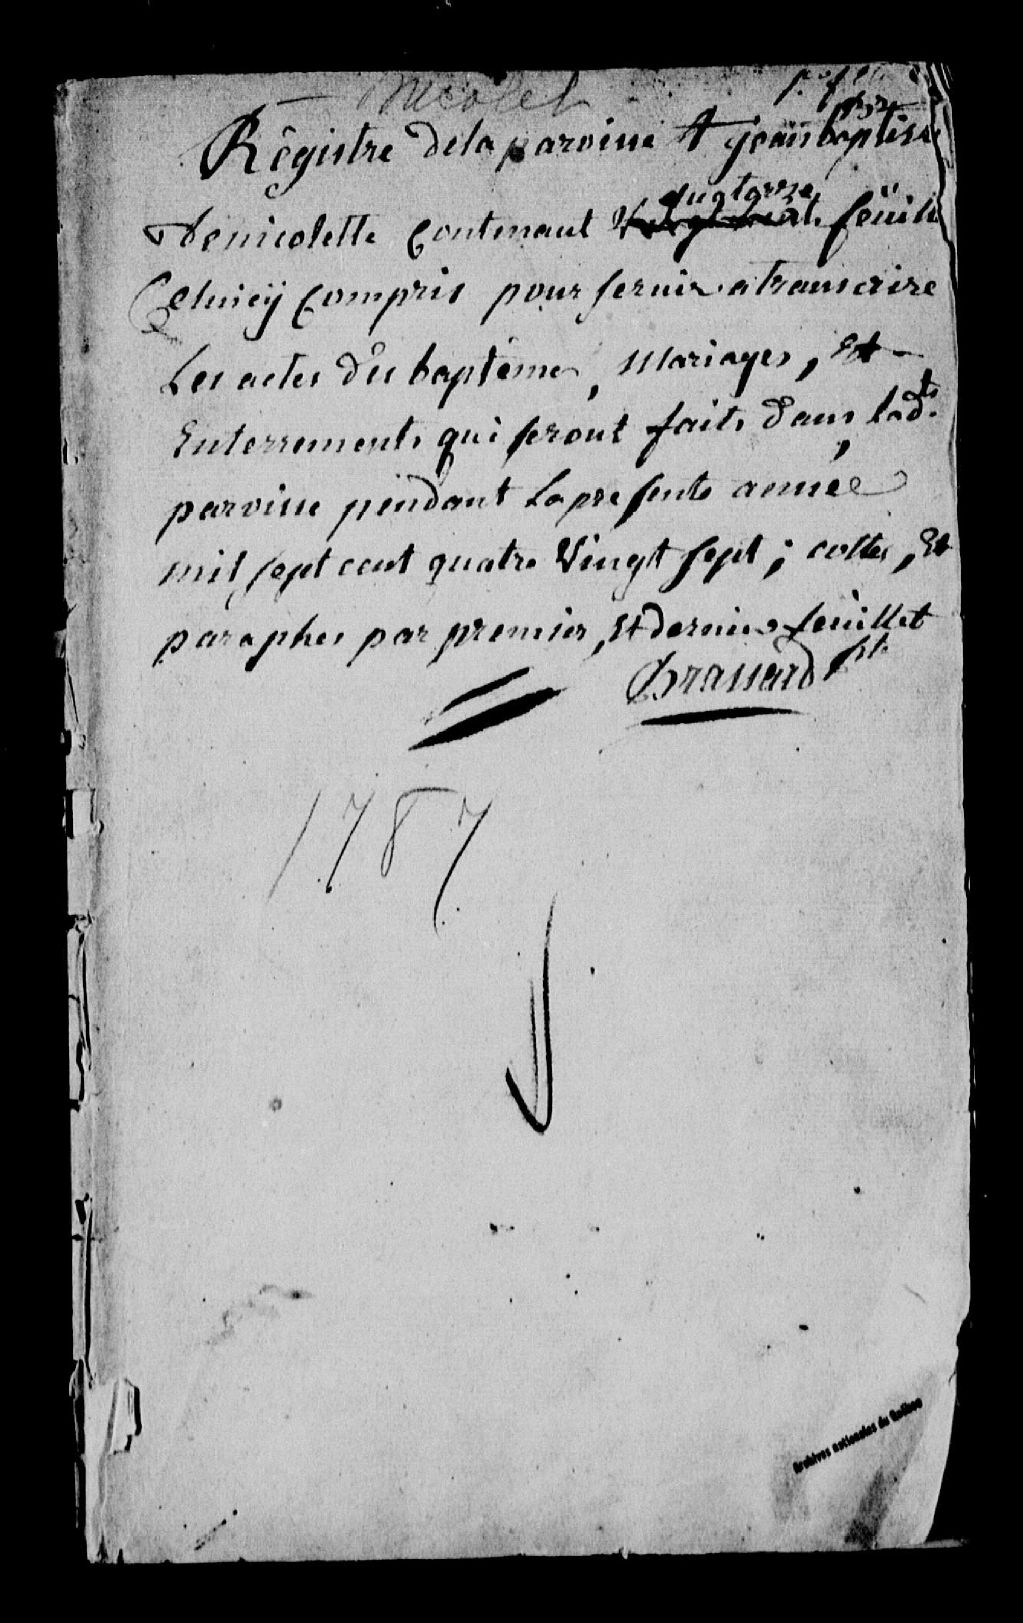 Nicolet
Régistre dela paroisse St jean baptiste
quatorze
Denicolette Contenant feüillet
Celuicÿ Compris pour servir a transcrire
Les actes des baptême, Mariages, Et
Enterrements qui seront faits dans lad.te
paroisse pendant La presente année
mil sept cent quatre Vingt sept ; cottés, Et
paraphes par premier, Et dernier feuillet
Brassard ptr
1787
Archives nationales du Québec